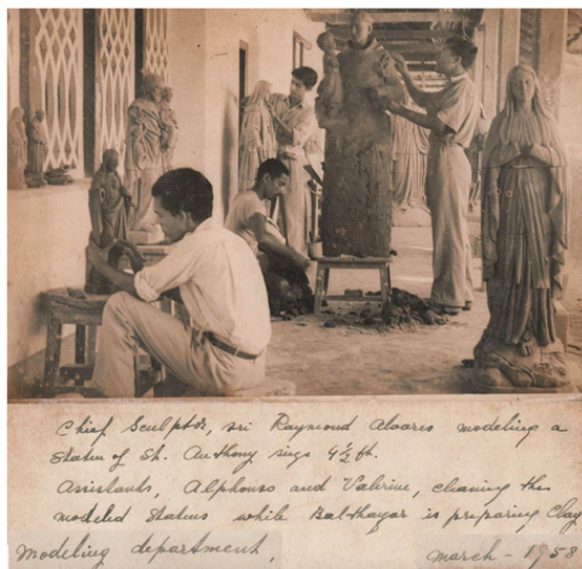 Chief Sculptor, sri Raymond Alvares modeling a
Statue of St. Anthony size 4½ ft.
Assistants, Alphonso and Valerine, cleaning the
modeled Statues while Balthazar is preparing Clay
Modeling department,
march - 1958